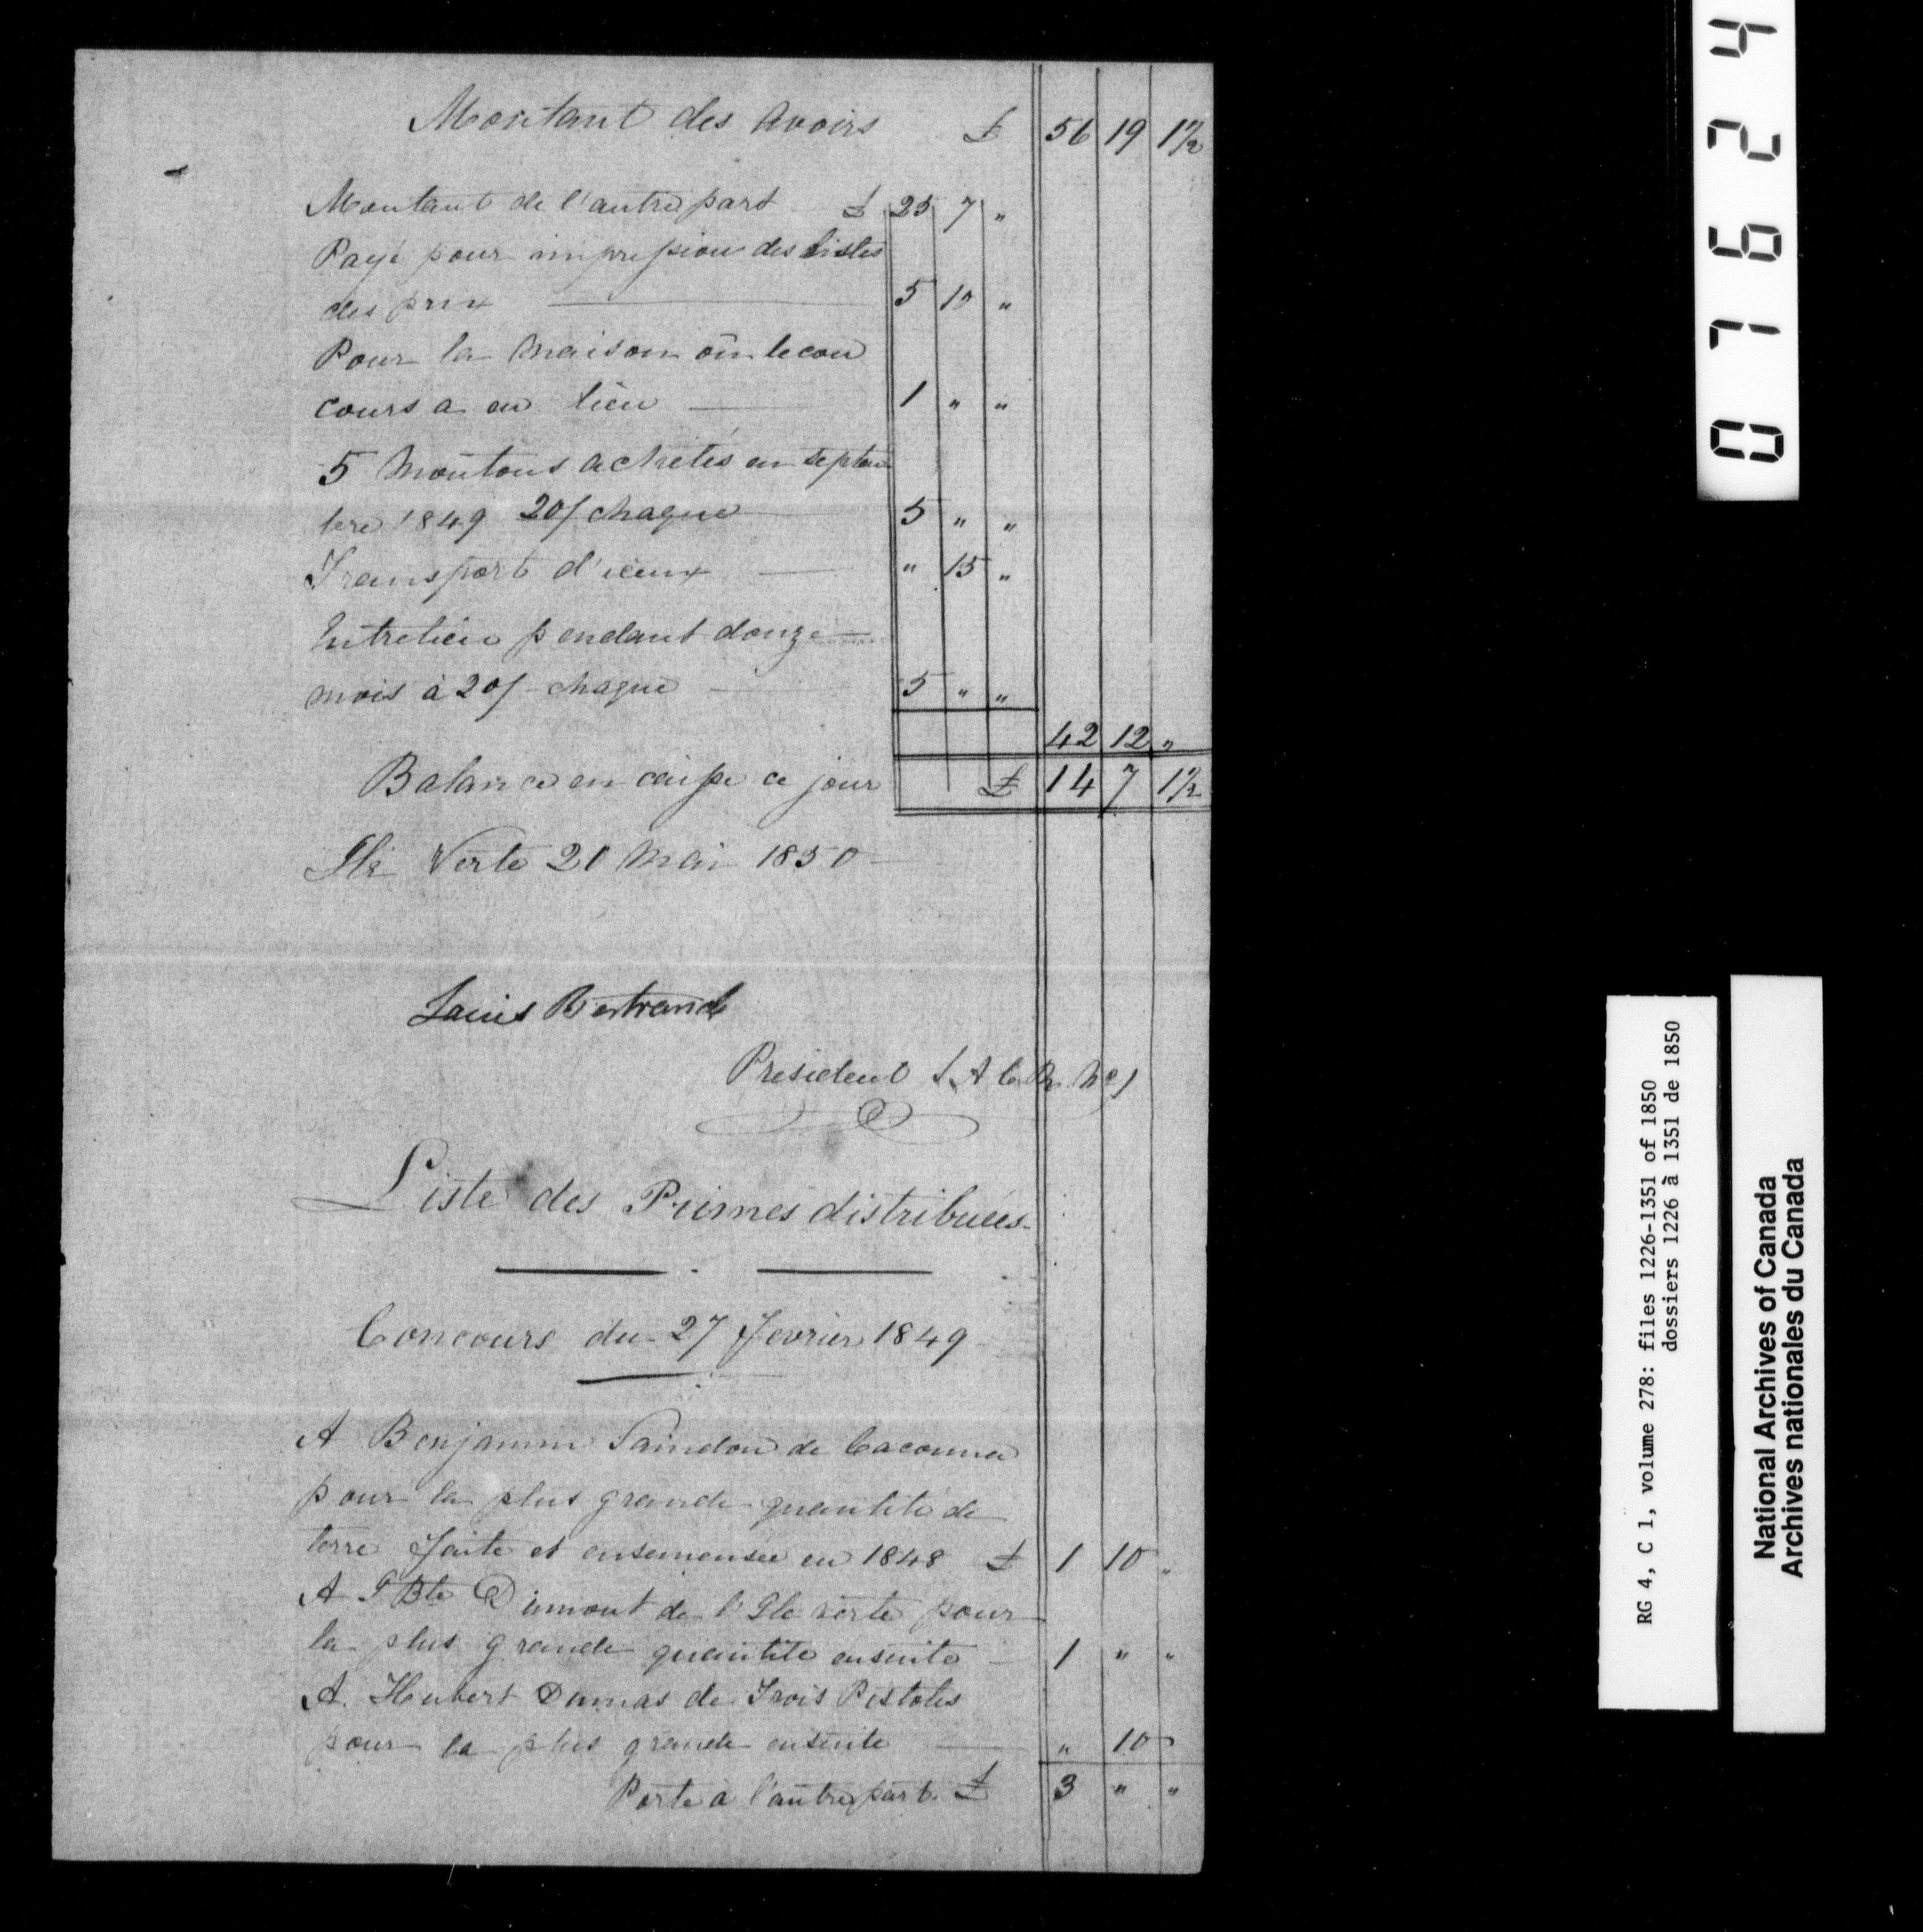 Montant des avoirs £ 56 19 1½
Montant de l'autre part £ 25 7 "
Payé pour impression des listes
des prix 5 10 "
Pour la maison où le con
cours a eu lieu 1 " "
5 Moutons achetés en septem
bre 1849 20/ chaque 5 " "
Transport d'iceux " 15 "
Entretien pendant douze
mois à 20/ chaque 5 " "
42 12 "
Balance en caisse ce jour £ 14 7 1½
Ile Verte 21 Mai 1850
Louis Bertrand
President S. A. C. R. No 1
Liste des Primes distribuées
Concours du 27 fevrier 1849
A Benjamin Saindon de Cacouna
pour la plus grande quantité de
terre faite et ensemensée en 1848 £ 1 10 "
A J Bte Dumont de l'Ile verte pour
la plus grande quantité ensuite 1 " "
A. Hubert Dumas de Trois Pistoles
pour la plus grande ensuite " 10 "
Porté a l'autre part £ 3 " "
07624
RG 4, C 1, volume 278: files 1226-1351 of 1850
dossiers 1226 à 1351 de 1850
National Archives of Canada
Archives nationales du Canada